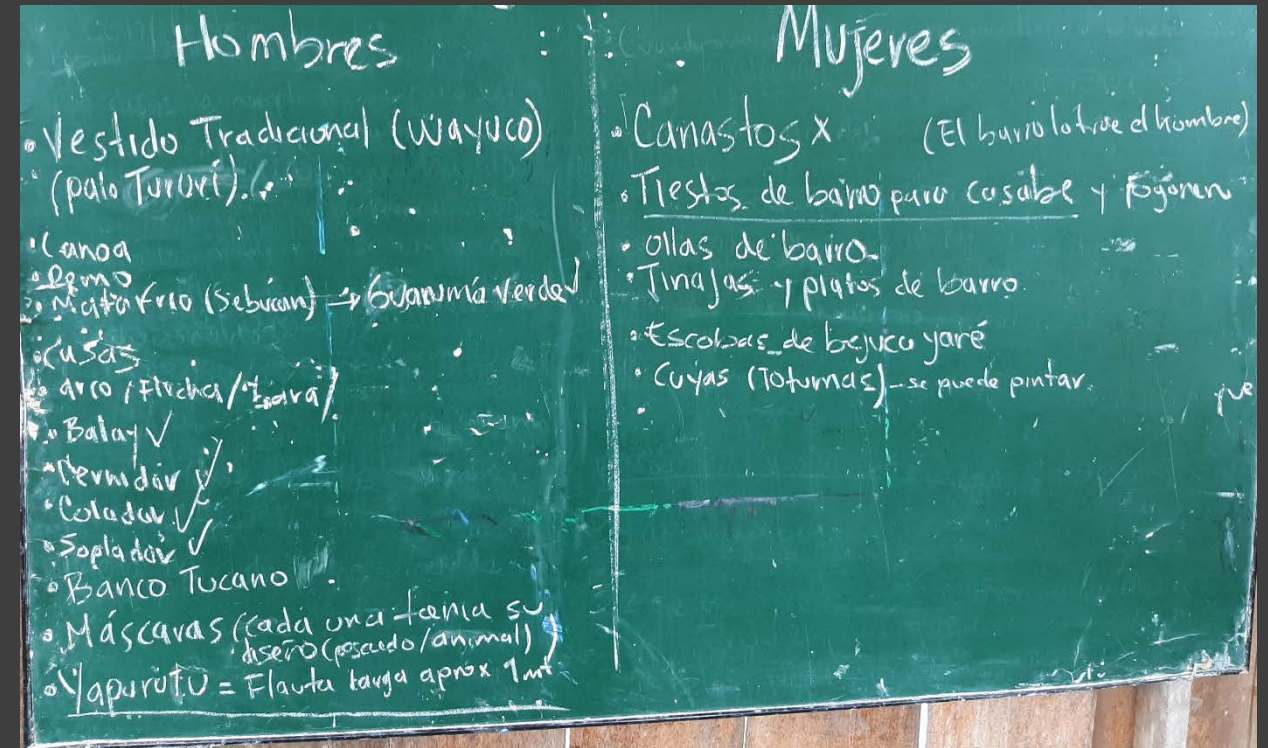 Hombres
• Vestido Tradicional (Wayuco)
(palo Tururí).
• Canoa
• Remo
• Matafrío (Sebucan) → Guarumá verde
• Casas
• arco / Flecha /
• Balay ✓
• Cernidor ✓
• Colador ✓
• Soplador ✓
• Banco Tucano
• Máscaras (cada una tenia su
diseño (pescado/animal)
• Yapurutú = Flauta larga aprox 1 mt
Mujeres
• Canastos x (El barro lo trae el hombre)
• Tiestos de barro para casabe y fogones
• Ollas de barro.
• Tinajas y platos de barro.
• Escobas de bejuco yaré
• Cuyas (Totumas) - se puede pintar.